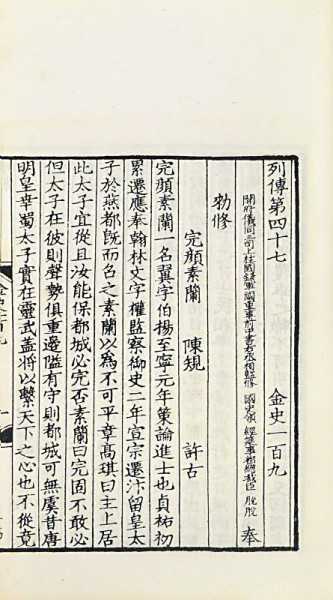 列傳第四十七　金史一百九
開府儀同三司上柱國錄軍國重事前中書右丞相監修國史領經筵事都總裁臣脫脫奉
勅修
完顏素蘭　陳規　許古
完顏素蘭一名翼字伯揚至寧元年策論進士也貞祐初
累遷應奉翰林文字權監察御史二年宣宗遷汴留皇太
子於燕都既而召之素蘭以為不可平章高琪曰主上居
此太子宜從且汝能保都城必完否素蘭曰完固不敢必
但太子在彼則聲勢俱重邊隘有守則都城可無虞昔唐
明皇幸蜀太子實在靈武蓋將以繫天下之心也不從竟